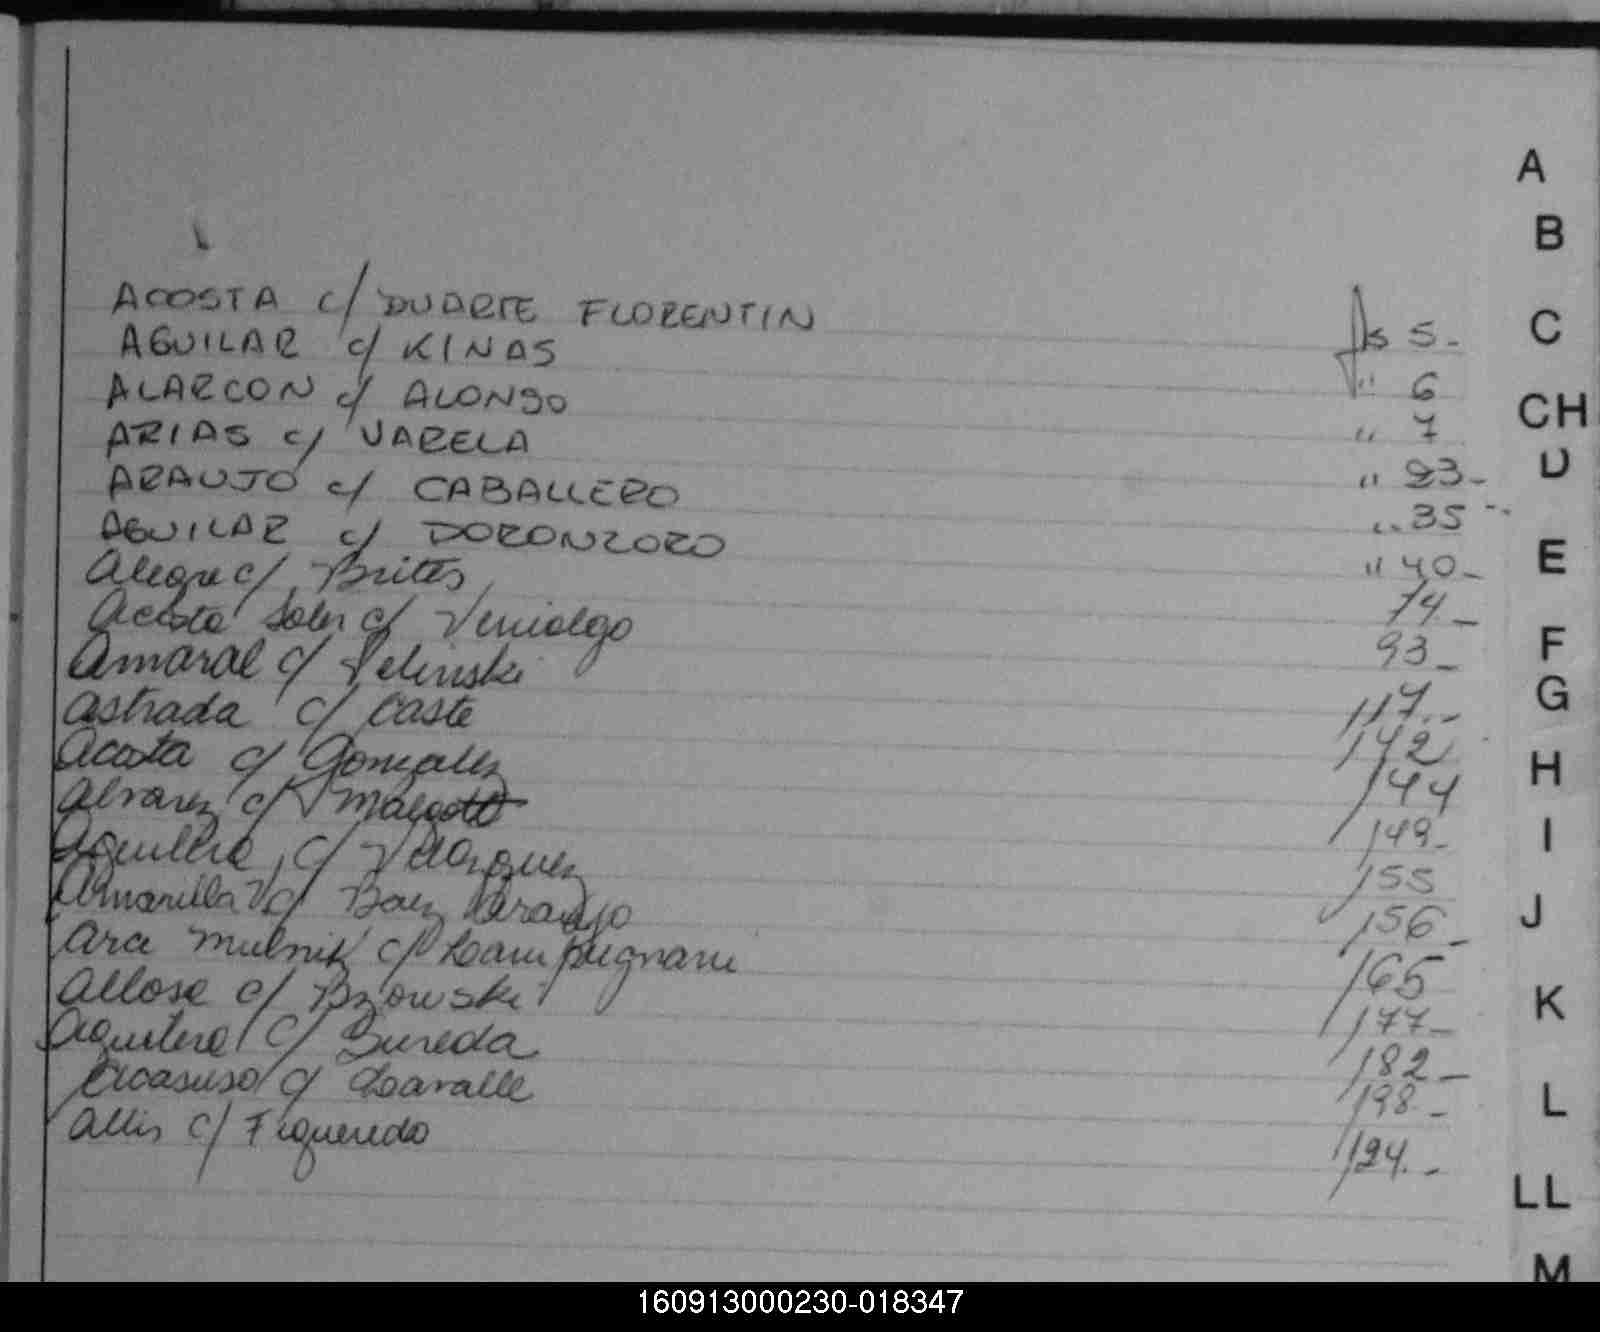 A
B
ACOSTA c/ DUARTE FLORENTIN fs 5.-
C
AGUILAR c/ KINAS " 6
ALARCON c/ ALONSO " 7
CH
ARIAS c/ VARELA " 23-
D
ARAUJO c/ CABALLERO " 35
AGUILAR c/ DORONZORO " 40-
E
Alegre c/ Brites 74.-
Acosta Soler c/ Venialgo 93-
F
Amaral c/ Pelinski 117.-
G
Astrada c/ Caste 142
Acosta c/ Gonzalez 144
H
Alvarez c/ 149-
I
Aguilera c/ Velazquez 155
Amarilla c/ Baez Araujo 156-
J
Ara Mulnik c/ Campugnani 165
Allose c/ Bzowski 177-
K
Aguilera c/ Bureda 182-
Acasuso c/ Lavalle 198.-
L
Allis c/ Figueredo 124.-
LL
M
160913000230-018347